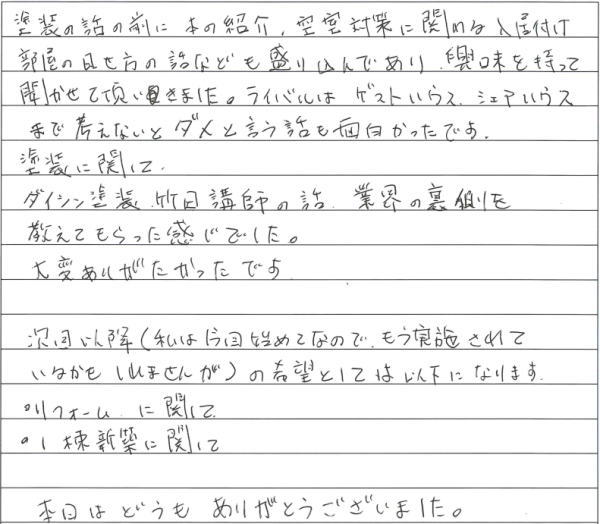 塗装の話の前に 本の紹介、空室対策に関わる入居付け
部屋の見せ方の話なども盛り込んであり、興味を持って
聞かせて頂いきました。ライバルは ゲストハウス、シェアハウス
まで考えないとダメと言う話も面白かったです。
塗装に関して、
ダイシン塗装、竹田講師の話、業界の裏側を
教えてもらった感じでした。
大変ありがたかったです
次回以降(私は今回始めてなので、もう実施されて
いるかもしれませんが)の希望としては以下になります。
○リフォーム に関して
○1棟新築に関して
本日はどうも ありがとうございました。